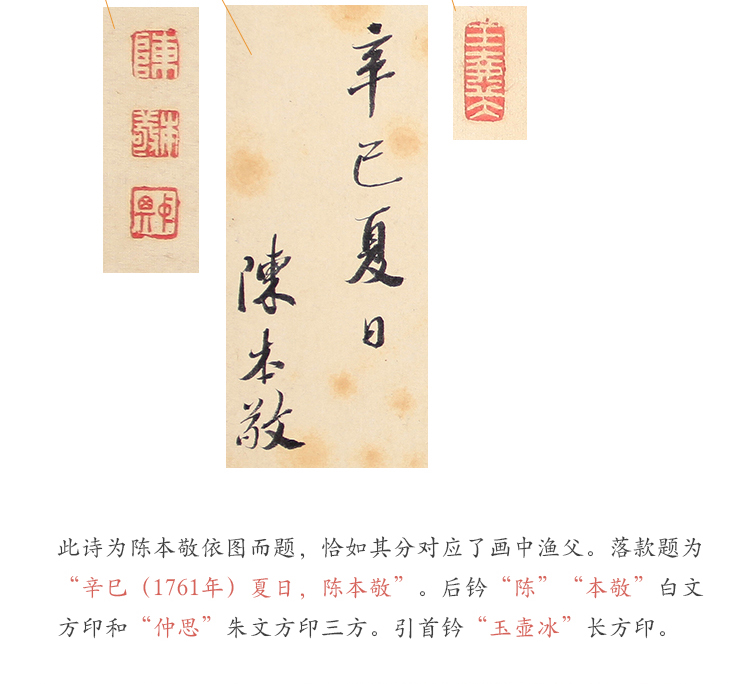 辛巳夏日
陳本敬
陳
本敬
仲思
玉壺冰
此诗为陈本敬依图而题，恰如其分对应了画中渔父。落款题为
“辛巳（1761年）夏日，陈本敬”。后钤“陈”“本敬”白文
方印和“仲思”朱文方印三方。引首钤“玉壶冰”长方印。